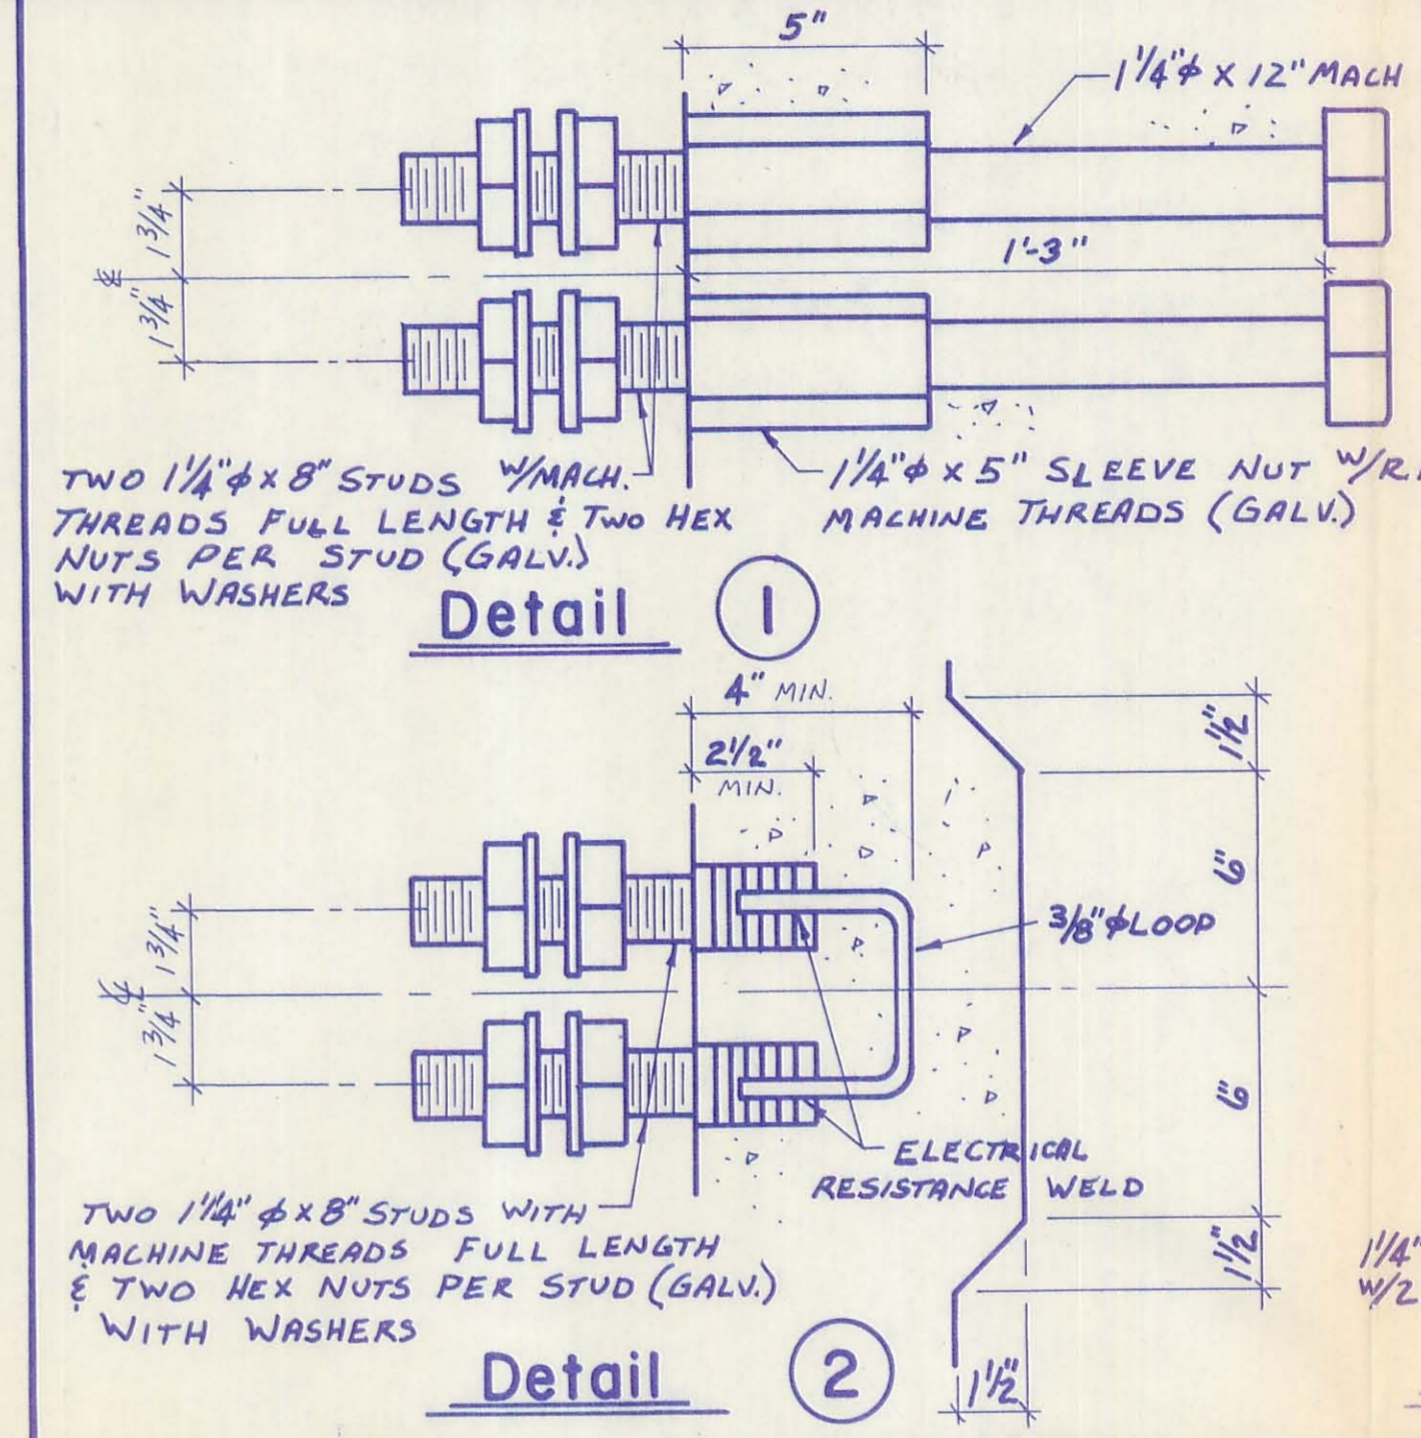 5"
1 1/4"ϕ X 12" MACH
1 3/4"
1 3/4"
℄
1'-3"
TWO 1 1/4"ϕ X 8" STUDS W/MACH.
THREADS FULL LENGTH & TWO HEX
NUTS PER STUD (GALV.)
WITH WASHERS
1 1/4"ϕ X 5" SLEEVE NUT W/R.
MACHINE THREADS (GALV.)
Detail 1
4" MIN.
2 1/2"
MIN.
1 1/2"
6"
3/8"ϕ LOOP
1 3/4"
℄
1 3/4"
6"
ELECTRICAL
RESISTANCE WELD
1 1/2"
TWO 1 1/4" ϕ X 8" STUDS WITH
MACHINE THREADS FULL LENGTH
& TWO HEX NUTS PER STUD (GALV.)
WITH WASHERS
1 1/4"
W/2
Detail 2
1 1/2"